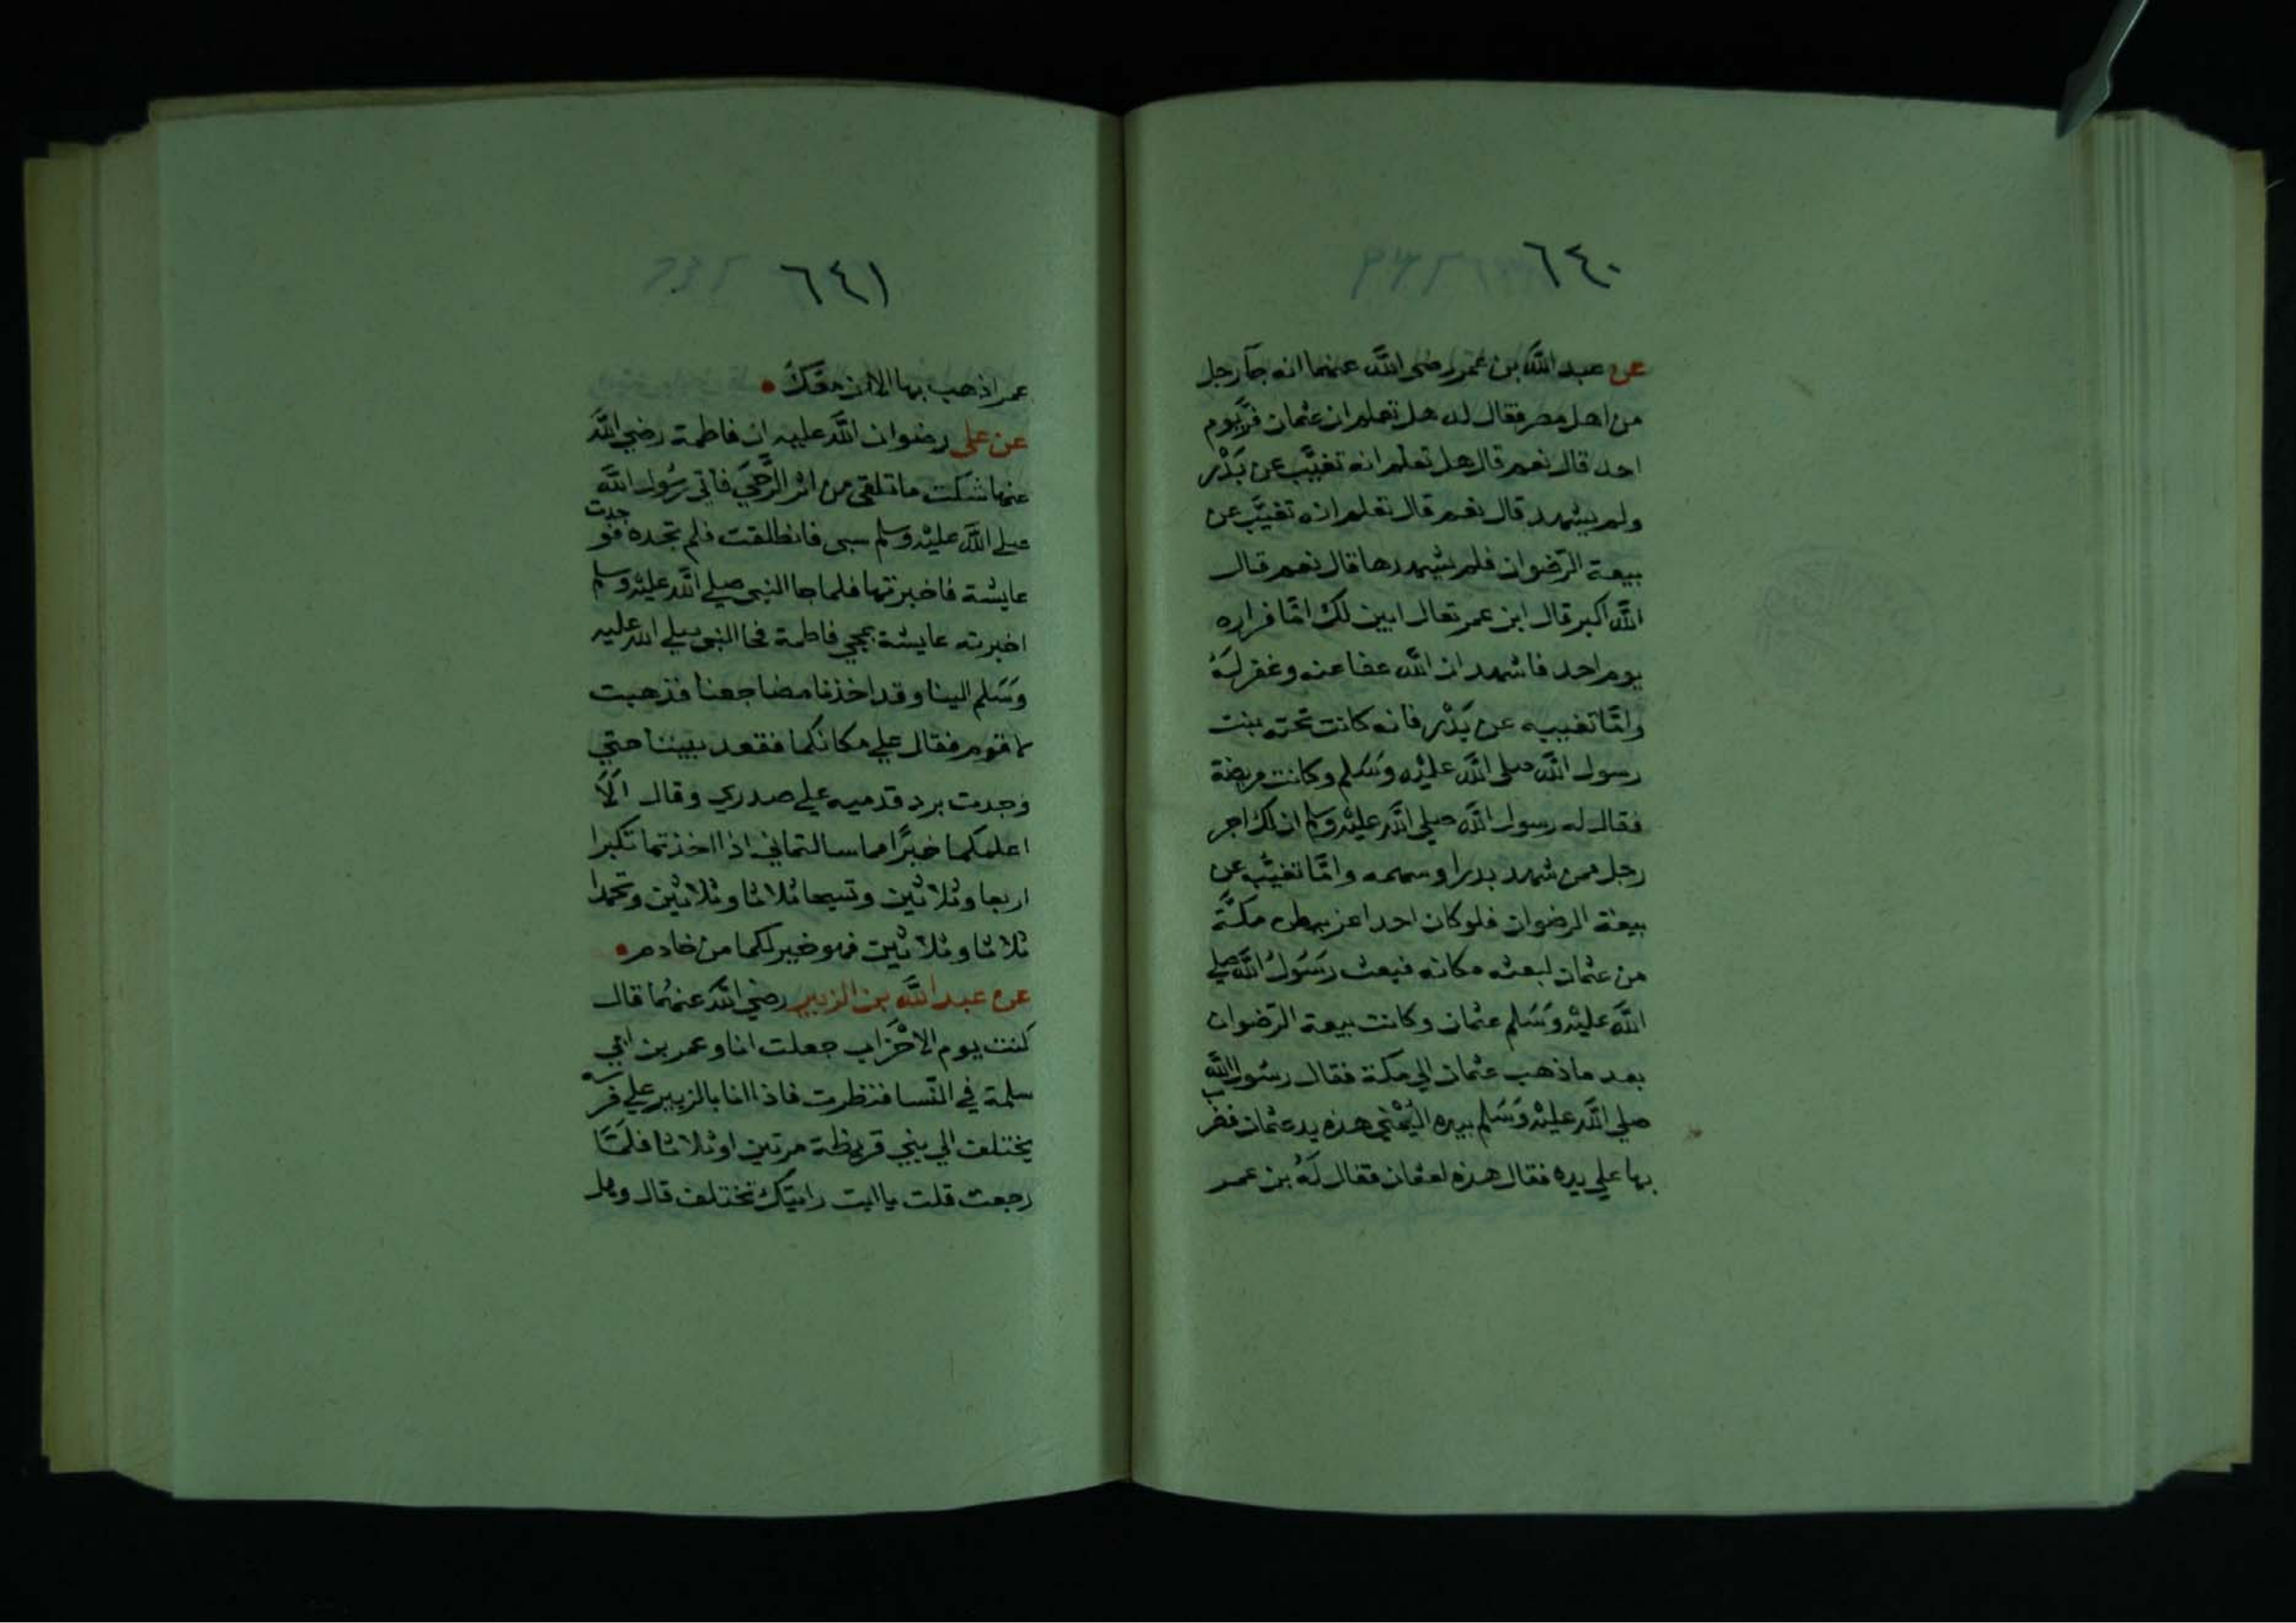 ٦٤٠
عن عبد الله بن عمر رضى الله عنهما انه جآ رجل
من اهل مصر فقال له هل تعلم ان عثمان فر يوم
احد قال نعم قال هل تعلم انه تغيَّب عن بَدْر
ولم يشهد قال نعم قال تعلم انه تغيَّب عن
بيعة الرّضوان فلم يشهدها قال نعم قال
اللّه اكبر قال ابن عمر تعال ابين لك امّا فراره
يوم احد فاشهد ان اللّه عفا عنه وغفر لَهُ
وامّا تغيبه عن بَدْر فانه كانت تحته بنت
رسول اللّه صلى اللّه عليْه وسَلم وكانت مريضة
فقال له رسول اللّه صلي اللّه عليْه وسلم ان لك اجر
رجل ممن شهد بدرا وسهمه وامّا تغيّبه عن
بيعة الرضوان فلو كان احد اعز ببطن مكَّة
من عثمان لبعثه مكانه فبعث رَسُولُ اللّه صلي
اللّه عليْه وَسَلم عثمان وكانت بيعة الرّضوان
بعد ما ذهب عثمان الي مكة فقال رسُول اللّه
صلي اللّه عليْه وَسَلم بيده اليُمْني هذه يد عثمان فضرب
بها علي يده فقال هذه لعثمان فقال لَهُ بن عمر
٦٤١
عمر اذهب بها الان معَكَ
عن على رضوان اللّه عليه ان فاطمة رضي اللّه
عنها شكت ما تلقى من اثر الرَّحَي فاتي رسُول اللّه
صلي اللّه عليْه وسلم سبي فانطلقت فلم تجده فوجدت
عايشة فاخبرتها فلما جا النبي صلي اللّه عليْه وسلم
اخبرته عايشة بمجي فاطمة فجا النبي صلي اللّه عليه
وسَلم الينا وقد اخذنا مضاجعنا فذهبت
لاقوم فقال علي مكانكما فقعد بيننا حتي
وجدت برد قدميه علي صدري وقال الَا
اعلمكما خيرًا مما سالتماني اذا اخذتما تكبرا
اربعا وثلاثين وتسبحا ثلاثا وثلاثين وتحمدا
ثلاثا وثلاثين فهو خير لكما من خادم
عن عبد اللّه بن الزبير رضي اللّه عنهُما قال
كنت يوم الاحْزَاب جعلت انا وعمر بن ابي
سلمة في النّسا فنظرت فاذا انا بالزبير علي فرسه
يختلف الي بني قريظة مرتين او ثلاثا فلمَّا
رجعت قلت يا ابت رايتك تختلف قال وهل